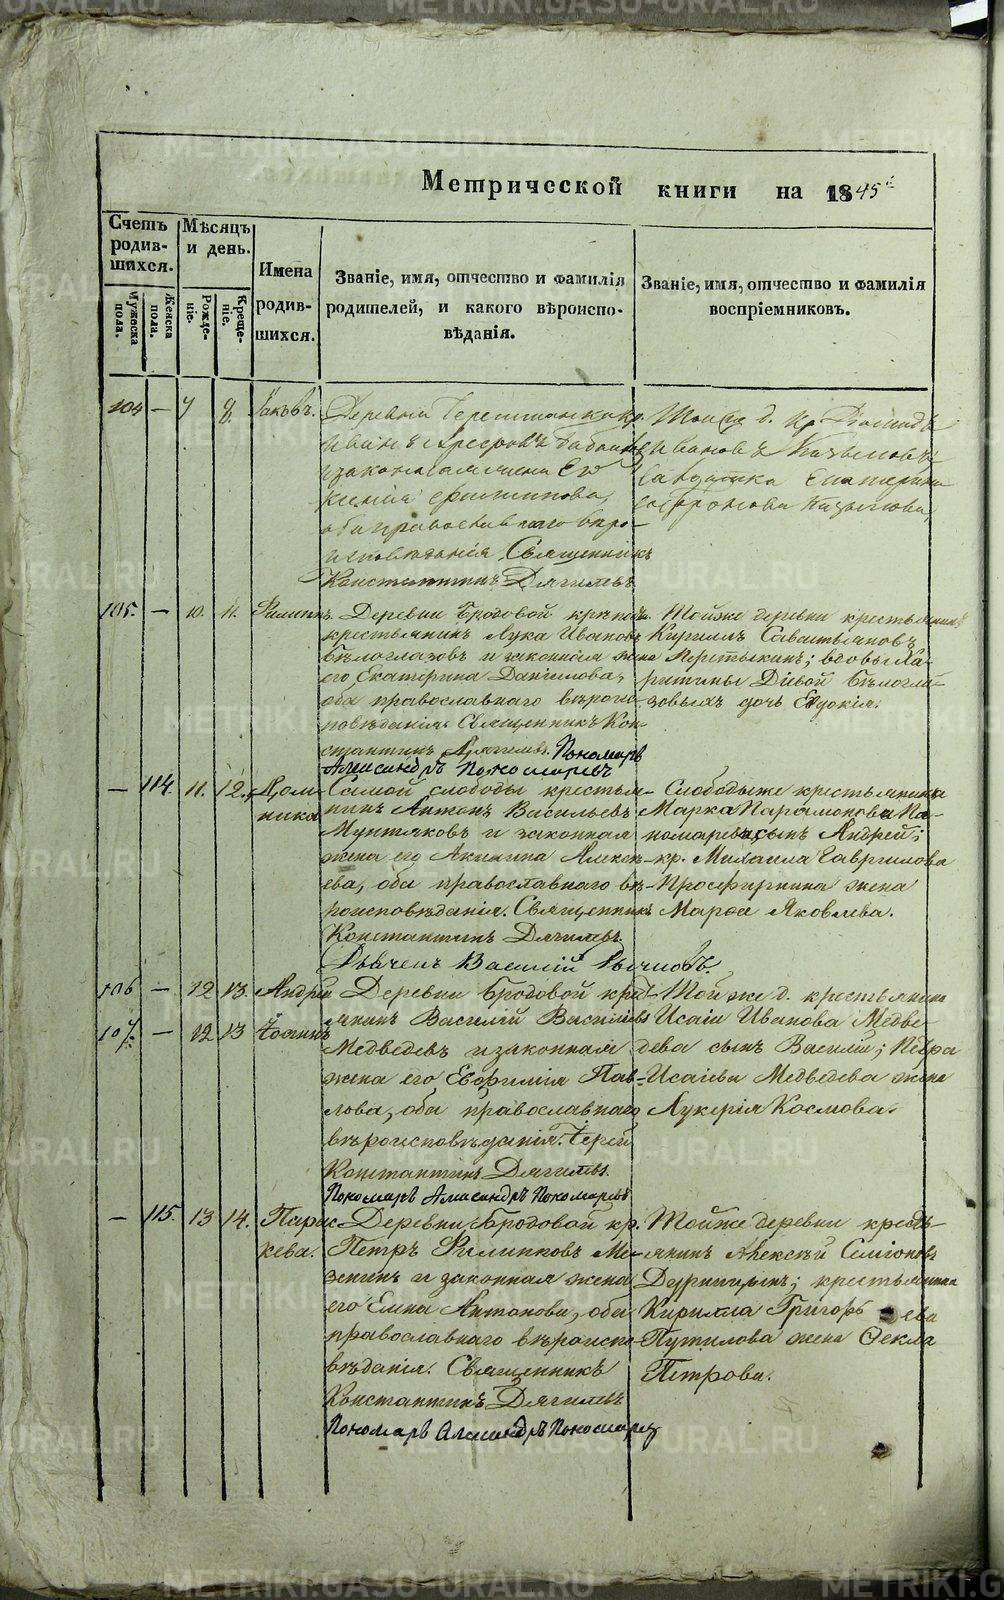 Метрической книги на 1845й
Счетъ родившихся.
Мѣсяцъ и день.
Мужеска пола.
Женска пола.
Рожденіе.
Крещеніе.
Имена родившихся.
Званіе, имя, отчество и фамилія
родителей, и какого вѣроиспо-
вѣданія.
Званіе, имя, отчество и фамилія
воспріемниковъ.
104 — 7 8. Іаковъ.
Деревни кр.
Иванъ
и законная жена Ев
Филипова,
оба православнаго вѣро-
исповѣданія. Священникъ
Константинъ Дягилевъ
Тойже д. кр
Ивановъ
Екатерина
105. — 10. 11. Филипъ.
Деревни Бродовой
крестьянинъ Лука Ивановъ
Бѣлоглазовъ и законная жена
его Екатерина Данилова,
оба православнаго вѣроис-
повѣданія. Священникъ Кон-
стантинъ Дягилевъ. Пономарь
Александръ Пономаревъ
Тойже деревни крестьянинъ
Кириллъ Савастьяновъ
вдовы Ма-
Бѣлогла-
зовыхъ дочь Евдокія.
— 114. 11. 12. Дом-
ника
Самой слободы крестья-
нинъ Антонъ Васильевъ
Мунтяковъ и законная
жена его Акилина Алексѣ-
ева, оба православнаго вѣ-
роисповѣданія. Священникъ
Константинъ Дягилевъ.
Дьячекъ Василій
Слободыже крестьянина
Марка Парамонова По-
номарева сынъ Андрей;
кр. Михаила Гаврилова
Просфирнина жена
Марѳа Яковлева.
106 — 12 13. Андрей
107. — 12 13 Іоаннъ
Деревни Бродовой кресть-
янинъ Василій Васильевъ
Медведевъ и законная
жена его Евфимія Пав-
лова, оба православнаго
вѣроисповѣданія. Іерей
Константинъ Дягилевъ.
Пономарь Александръ Пономаревъ
Той же д. крестьянина
Исаіи Иванова Медве
дева сынъ Василій; Петра
Исаіева Медведева жена
Лукерія Космова.
— 115. 13 14. Парас
кева.
Деревни Бродовой кр.
Петръ Филипповъ Ме-
и законная жена
его Елена Антонова, оба
православнаго вѣроиспо-
вѣданія. Священникъ
Константинъ Дягилевъ
Пономарь Александръ Пономаревъ
Тойже деревни кресть-
янинъ Алексѣй Семіоновъ
крестьянина
Кирилла Григорь ева
Путилова жена Ѳекла
Петрова.
METRIKI.GASO-URAL.RU